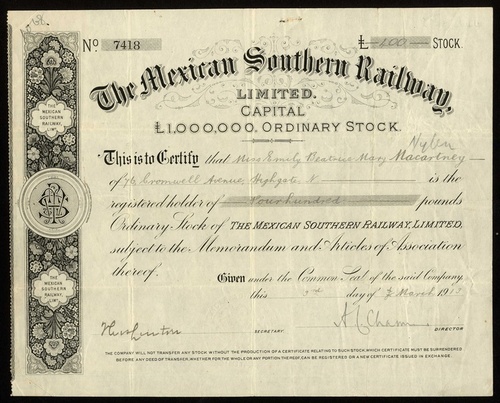 No 7418 £ 400 STOCK.
The Mexican Southern Railway,
LIMITED.
CAPITAL
£1,000,000. ORDINARY STOCK.
This is to Certify that Miss Emily Beatrice Mary Macartney
of Cromwell Avenue, Highgate, N is the
registered holder of Four hundred pounds
Ordinary Stock of THE MEXICAN SOUTHERN RAILWAY, LIMITED,
subject to the Memorandum and Articles of Association
thereof.
Given under the Common Seal of the said Company,
this 3rd day of March 19
SECRETARY.
DIRECTOR
THE COMPANY WILL NOT TRANSFER ANY STOCK WITHOUT THE PRODUCTION OF A CERTIFICATE RELATING TO SUCH STOCK, WHICH CERTIFICATE MUST BE SURRENDERED
BEFORE ANY DEED OF TRANSFER, WHETHER FOR THE WHOLE OR ANY PORTION THEREOF, CAN BE REGISTERED OR A NEW CERTIFICATE ISSUED IN EXCHANGE.
THE
MEXICAN
SOUTHERN
RAILWAY,
LIMT.
THE
MEXICAN
SOUTHERN
RAILWAY,
LIMT.